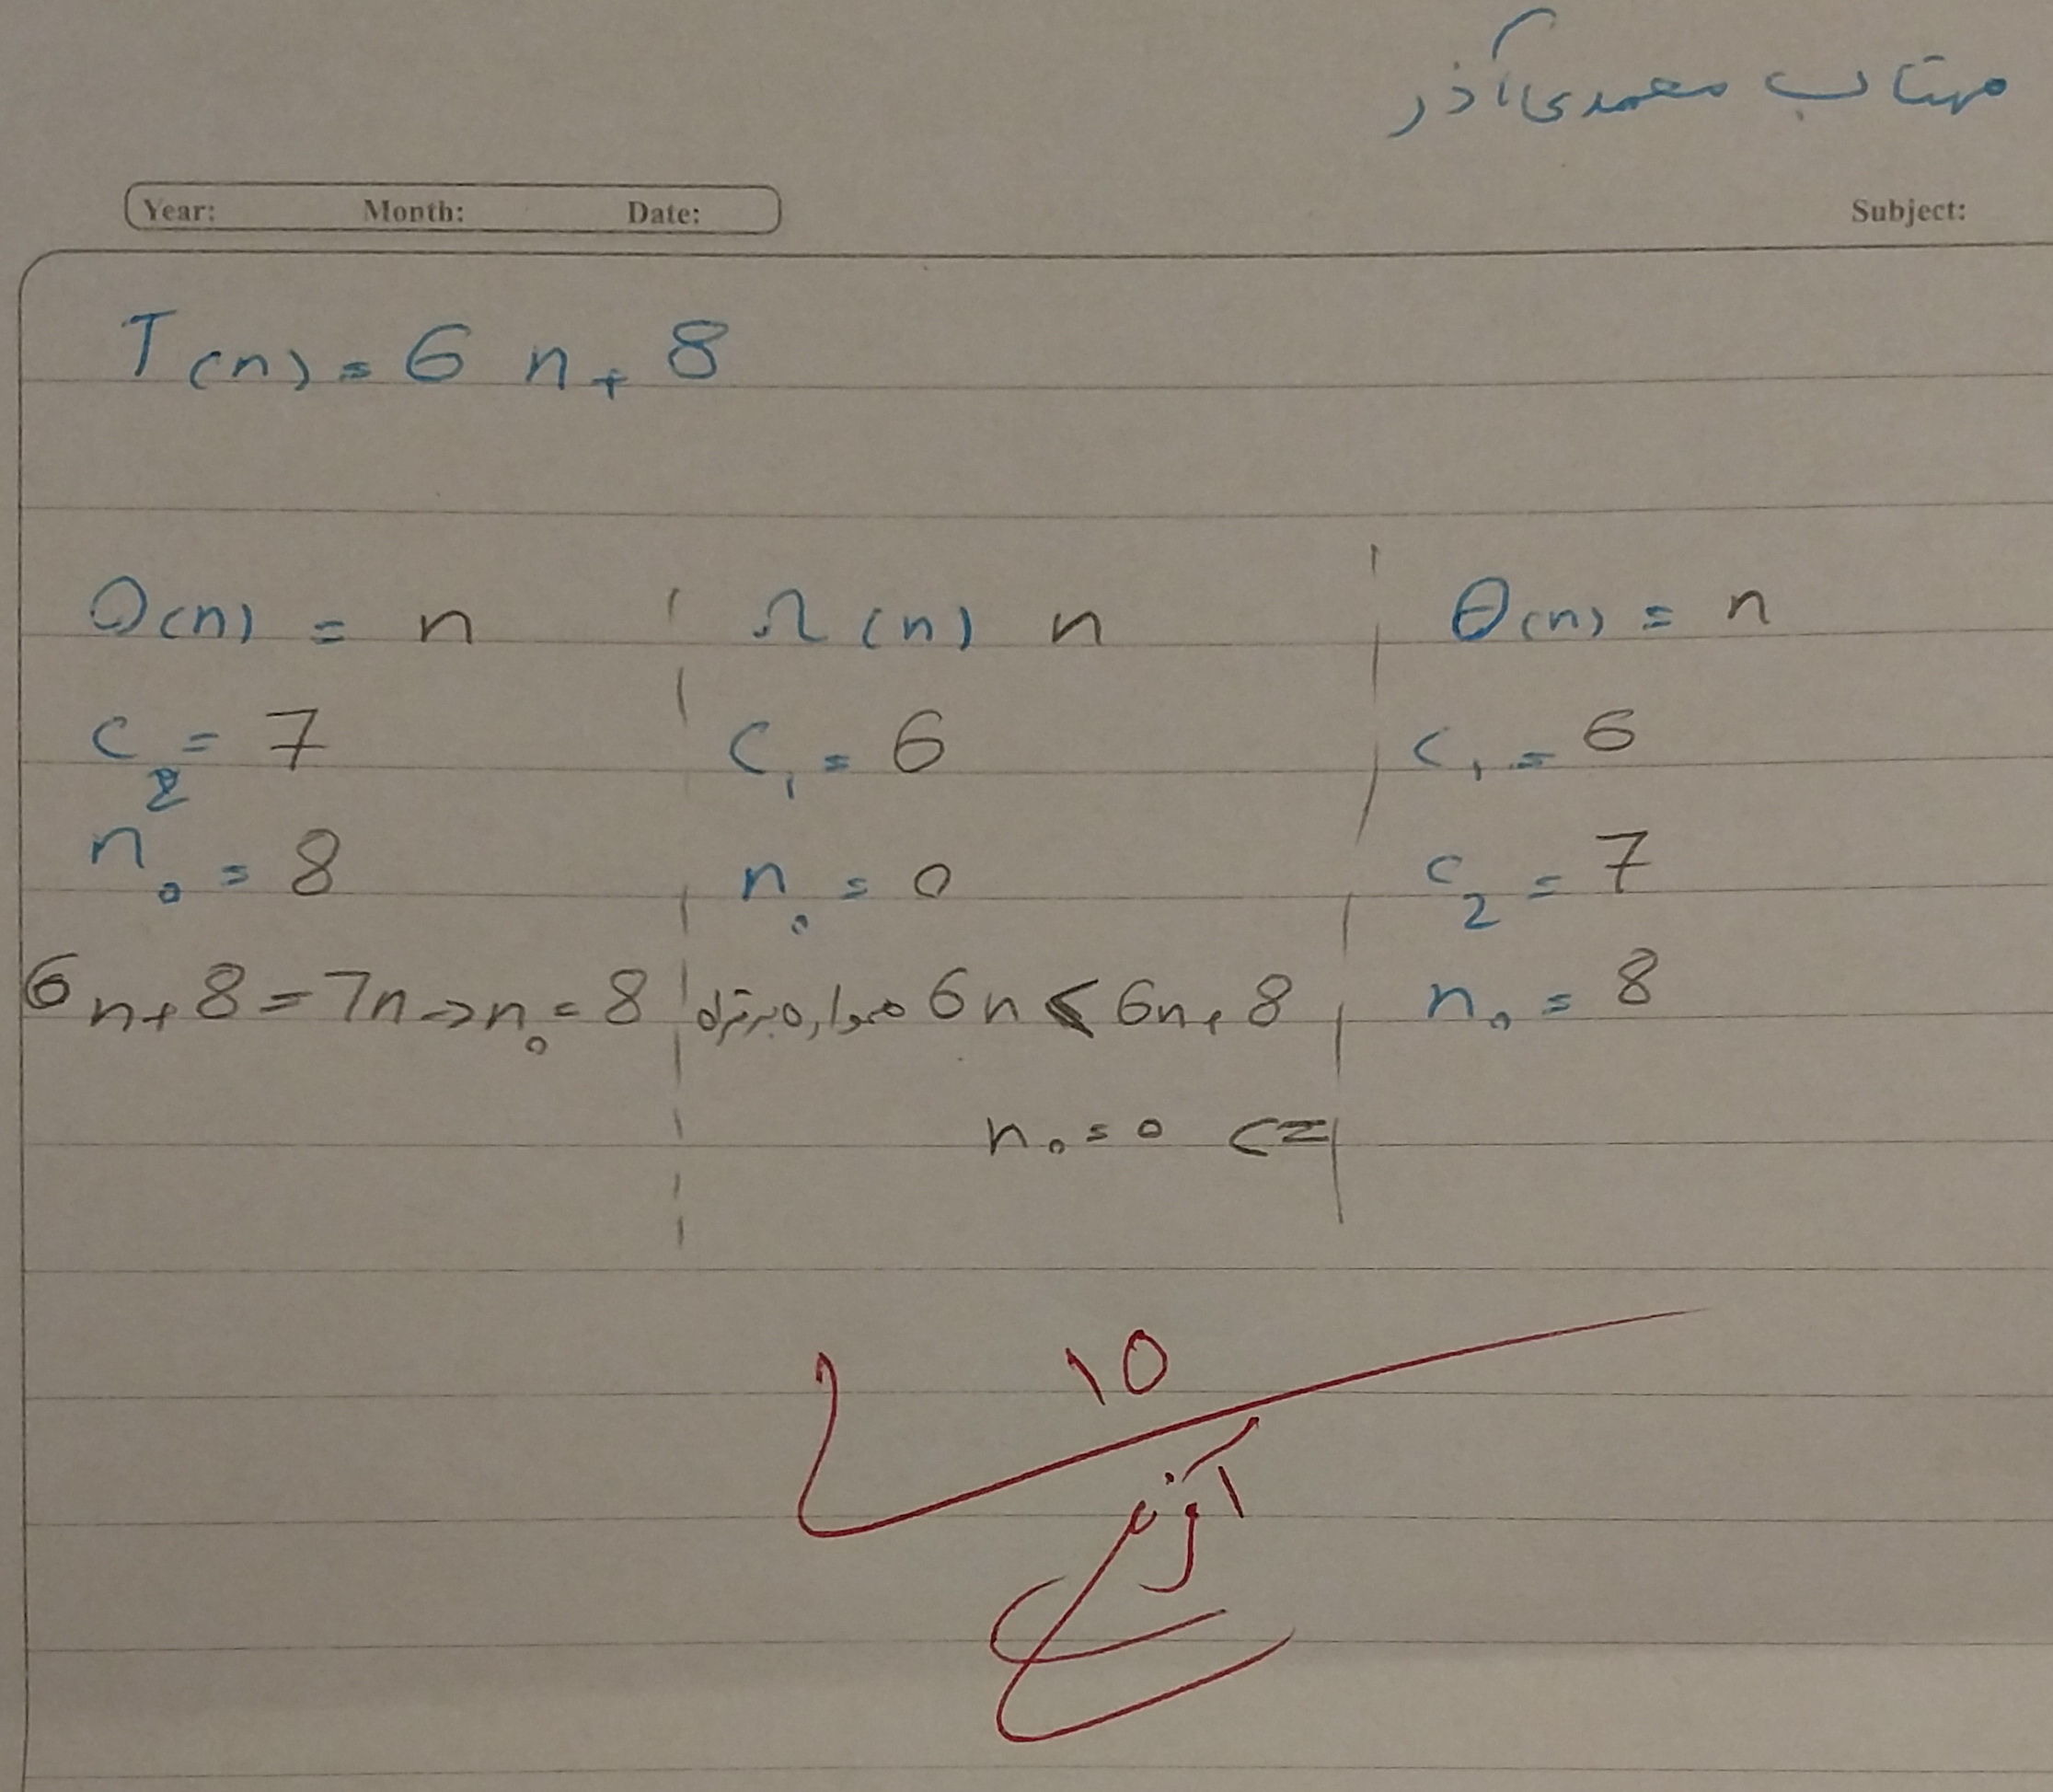 مهتاب محمدی آذر
Year: Month: Date: Subject:
T(n) = 6 n + 8
O(n) = n
c₂ = 7
n₀ = 8
6n + 8 = 7n → n₀ = 8
Ω(n) n
c₁ = 6
n₀ = 0
همواره برقرار 6n ≤ 6n + 8
n₀ = 0 <=
θ(n) = n
c₁ = 6
c₂ = 7
n₀ = 8
10